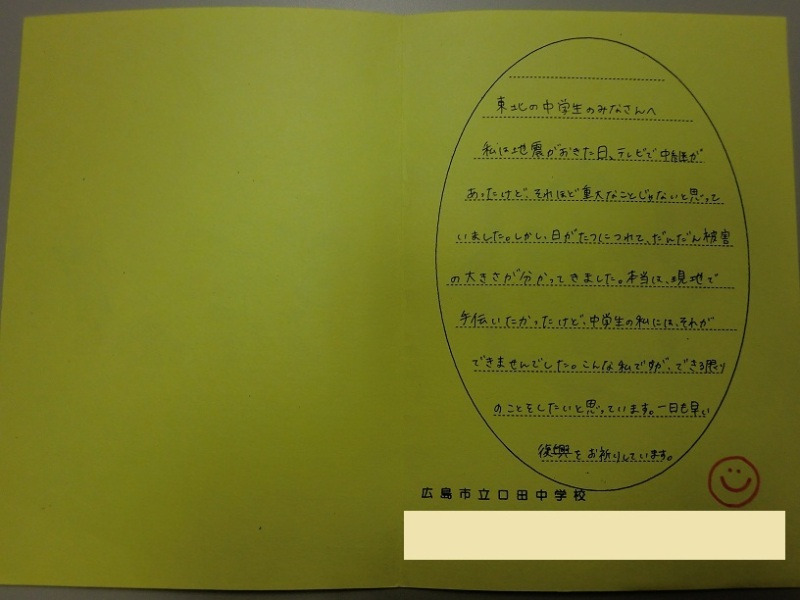 東北の中学生のみなさんへ
私は地震がおきた日、テレビで中継が
あったけど、それほど重大なことじゃないと思って
いました。しかし、日がたつにつれて、だんだん被害
の大きさが分かってきました。本当は、現地で
手伝いたかったけど、中学生の私には、それが
できませんでした。こんな私ですが、できる限り
のことをしたいと思っています。一日も早い
復興をお祈りしています。
広島市立口田中学校